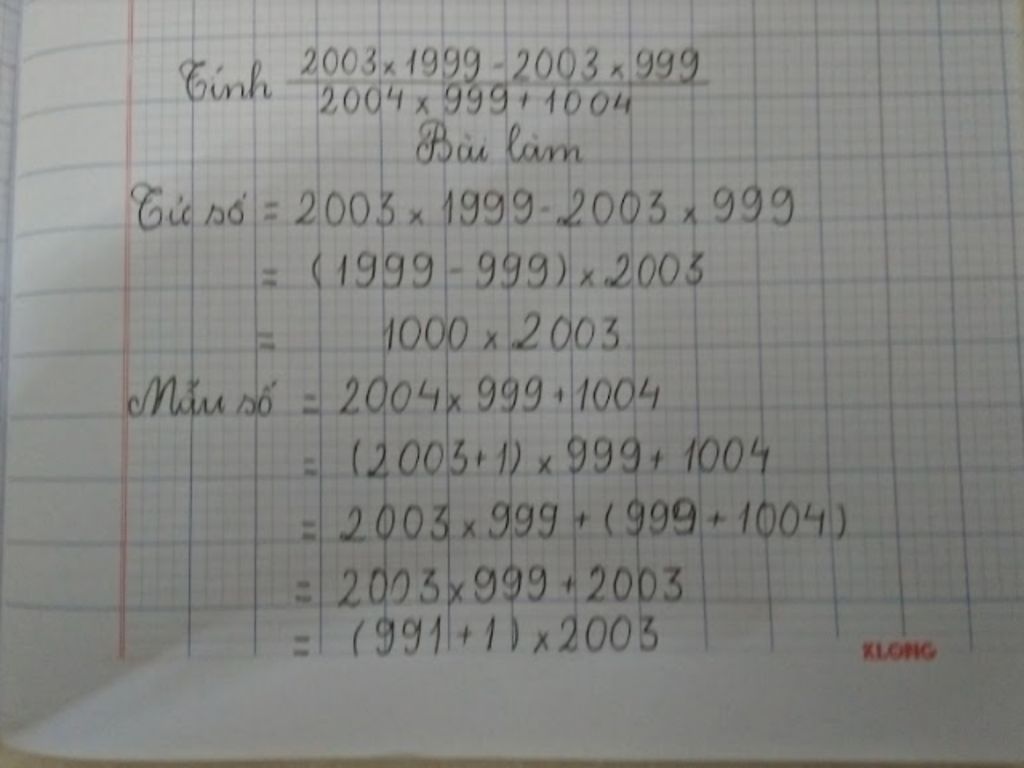 Tính 2003 x 1999 - 2003 x 999
2004 x 999 + 1004
Bài làm
Tử số = 2003 x 1999 - 2003 x 999
= (1999 - 999) x 2003
= 1000 x 2003
Mẫu số = 2004 x 999 + 1004
= (2003 + 1) x 999 + 1004
= 2003 x 999 + (999 + 1004)
= 2003 x 999 + 2003
= (991 + 1) x 2003
KLONG